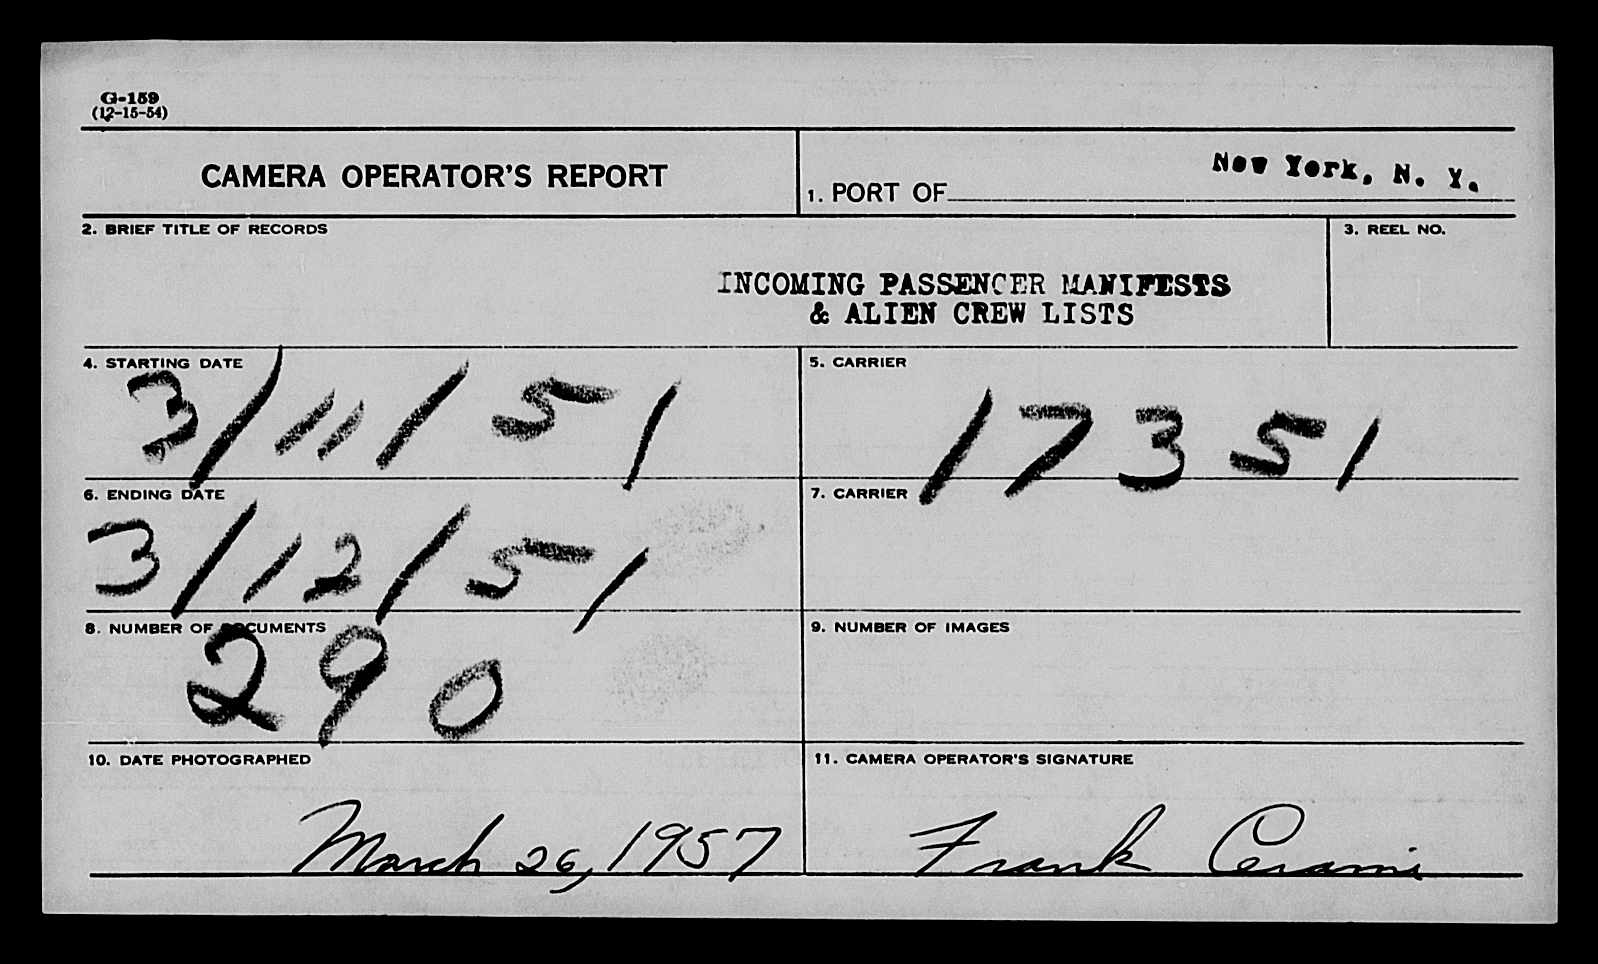 G-159
(12-15-54)
CAMERA OPERATOR'S REPORT
1. PORT OF New York, N. Y.
2. BRIEF TITLE OF RECORDS
3. REEL NO.
INCOMING PASSENGER MANIFESTS
& ALIEN CREW LISTS
4. STARTING DATE
3/11/51
5. CARRIER
17351
6. ENDING DATE
3/12/51
7. CARRIER
8. NUMBER OF DOCUMENTS
290
9. NUMBER OF IMAGES
10. DATE PHOTOGRAPHED
March 26, 1957
11. CAMERA OPERATOR'S SIGNATURE
Frank Cerami